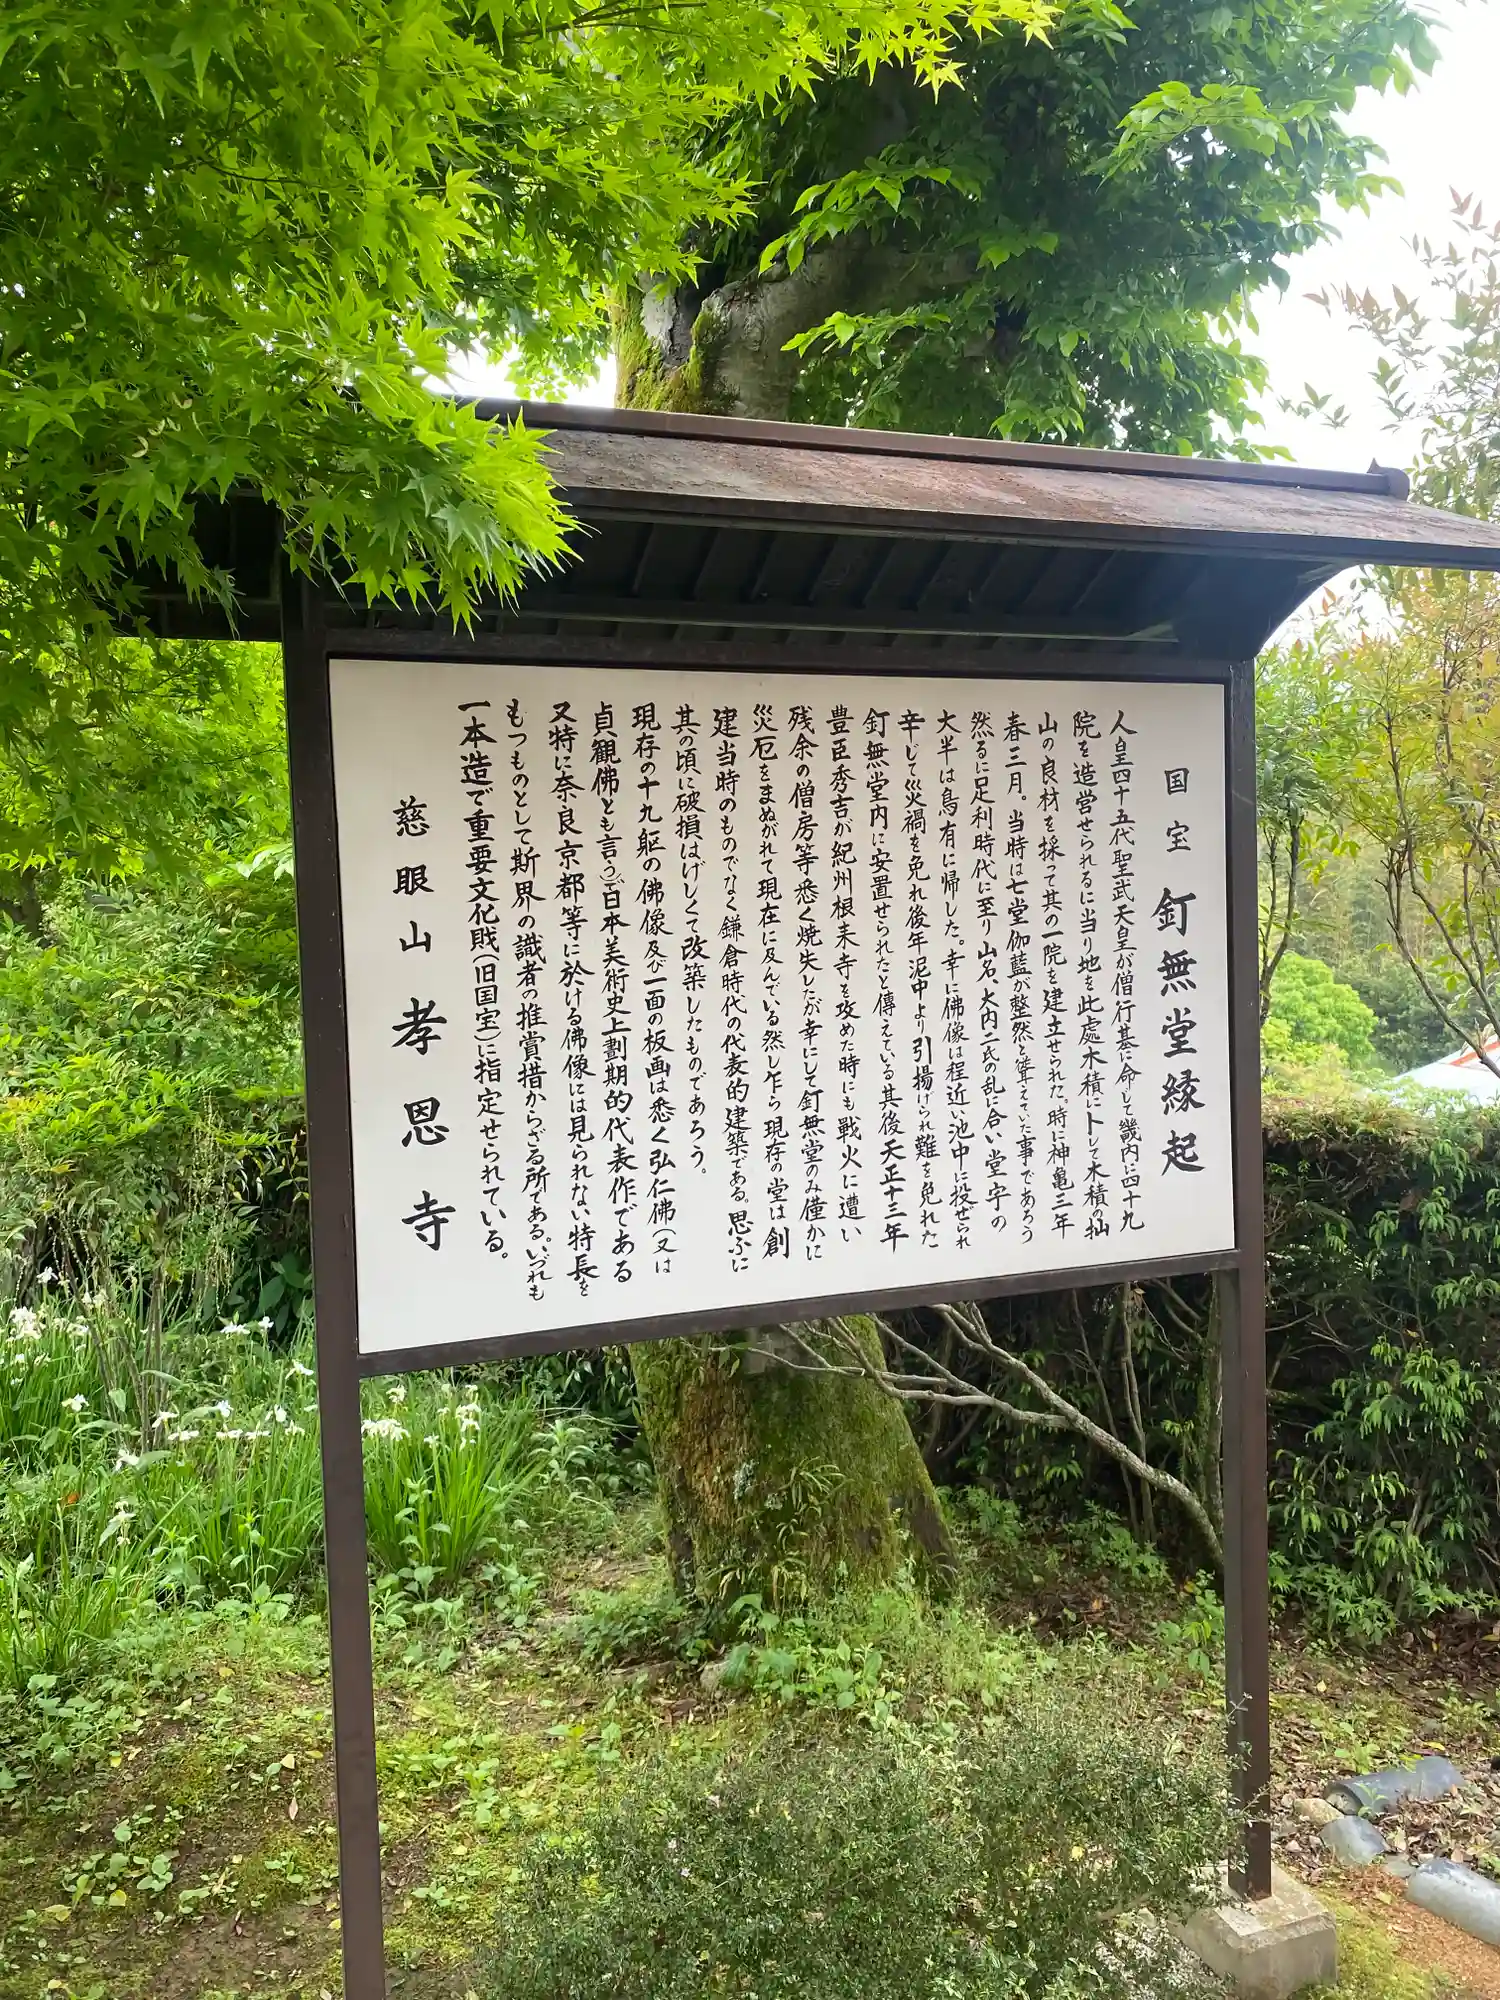 国宝 釘無堂縁起
人皇四十五代聖武天皇が僧行基に命じて畿内に四十九
院を造営せられるに当り地を此處木積にトして木積の拙
山の良材を採って其の一院を建立せられた。時に神亀三年
春三月。当時は七堂伽藍が整然と聳えていた事であろう
然るに足利時代に至り山名、大内二氏の乱に合い堂宇の
大半は烏有に帰した。幸に佛像は程近い池中に投ぜられ
辛じて災禍を免れ後年泥中より引揚げられ難を免れた
釘無堂内に安置せられたと傳えている其後天正十三年
豊臣秀吉が紀州根来寺を攻めた時にも戦火に遭い
残余の僧房等悉く焼失したが幸にして釘無堂のみ僅かに
災厄をまぬがれて現在に及んでいる然し乍ら現存の堂は創
建当時のものでなく鎌倉時代の代表的建築である。思ふに
其の頃に破損はげしくて改築したものであろう。
現存の十九躯の佛像及び一面の板画は悉く弘仁佛(又は
貞観佛とも言う)で日本美術史上劃期的代表作である
又特に奈良京都等に於ける佛像には見られない特長を
もつものとして斯界の識者の推賞措からざる所である。いづれも
一本造で重要文化財(旧国宝)に指定せられている。
慈眼山 孝恩寺